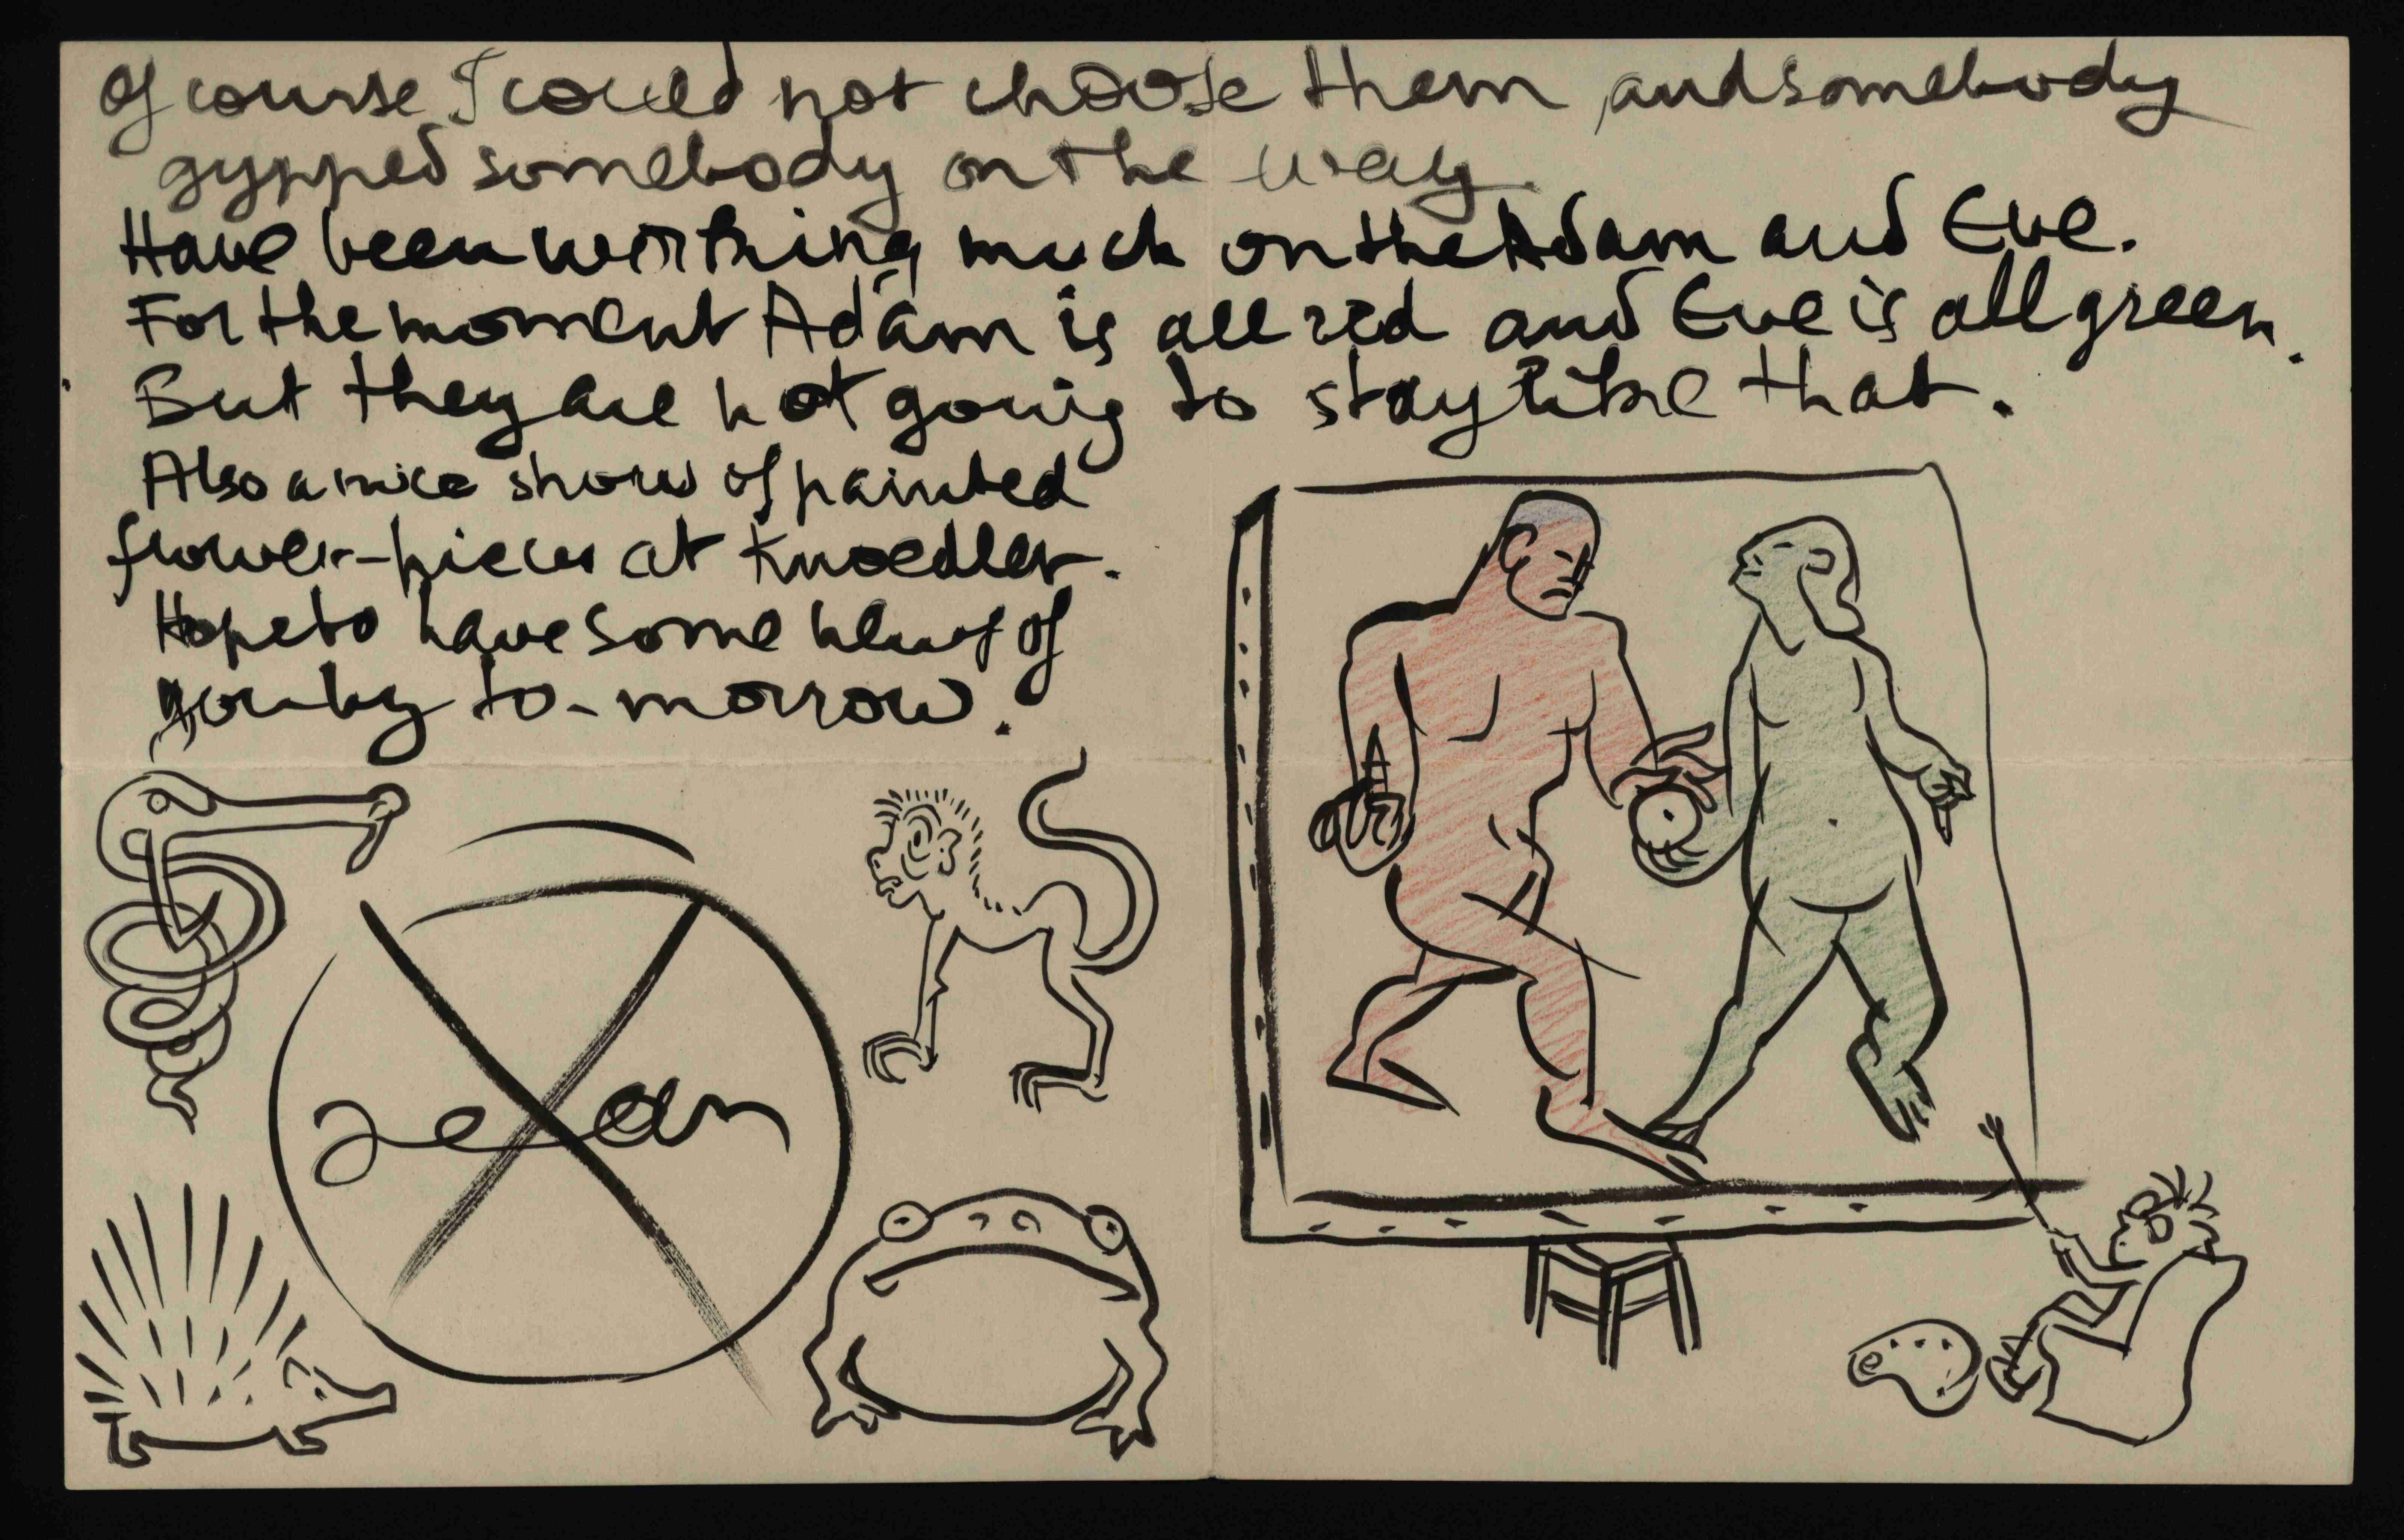 Of course I could not choose them, and somebody
gypped somebody on the way.
Have been working much on the Adam and Eve.
For the moment Adam is all red and Eve is all green.
But they are not going to stay like that.
Also a nice show of painted
flower-pieces at Knoedler.
Hope to have some news of
you by to-morrow.
Jean